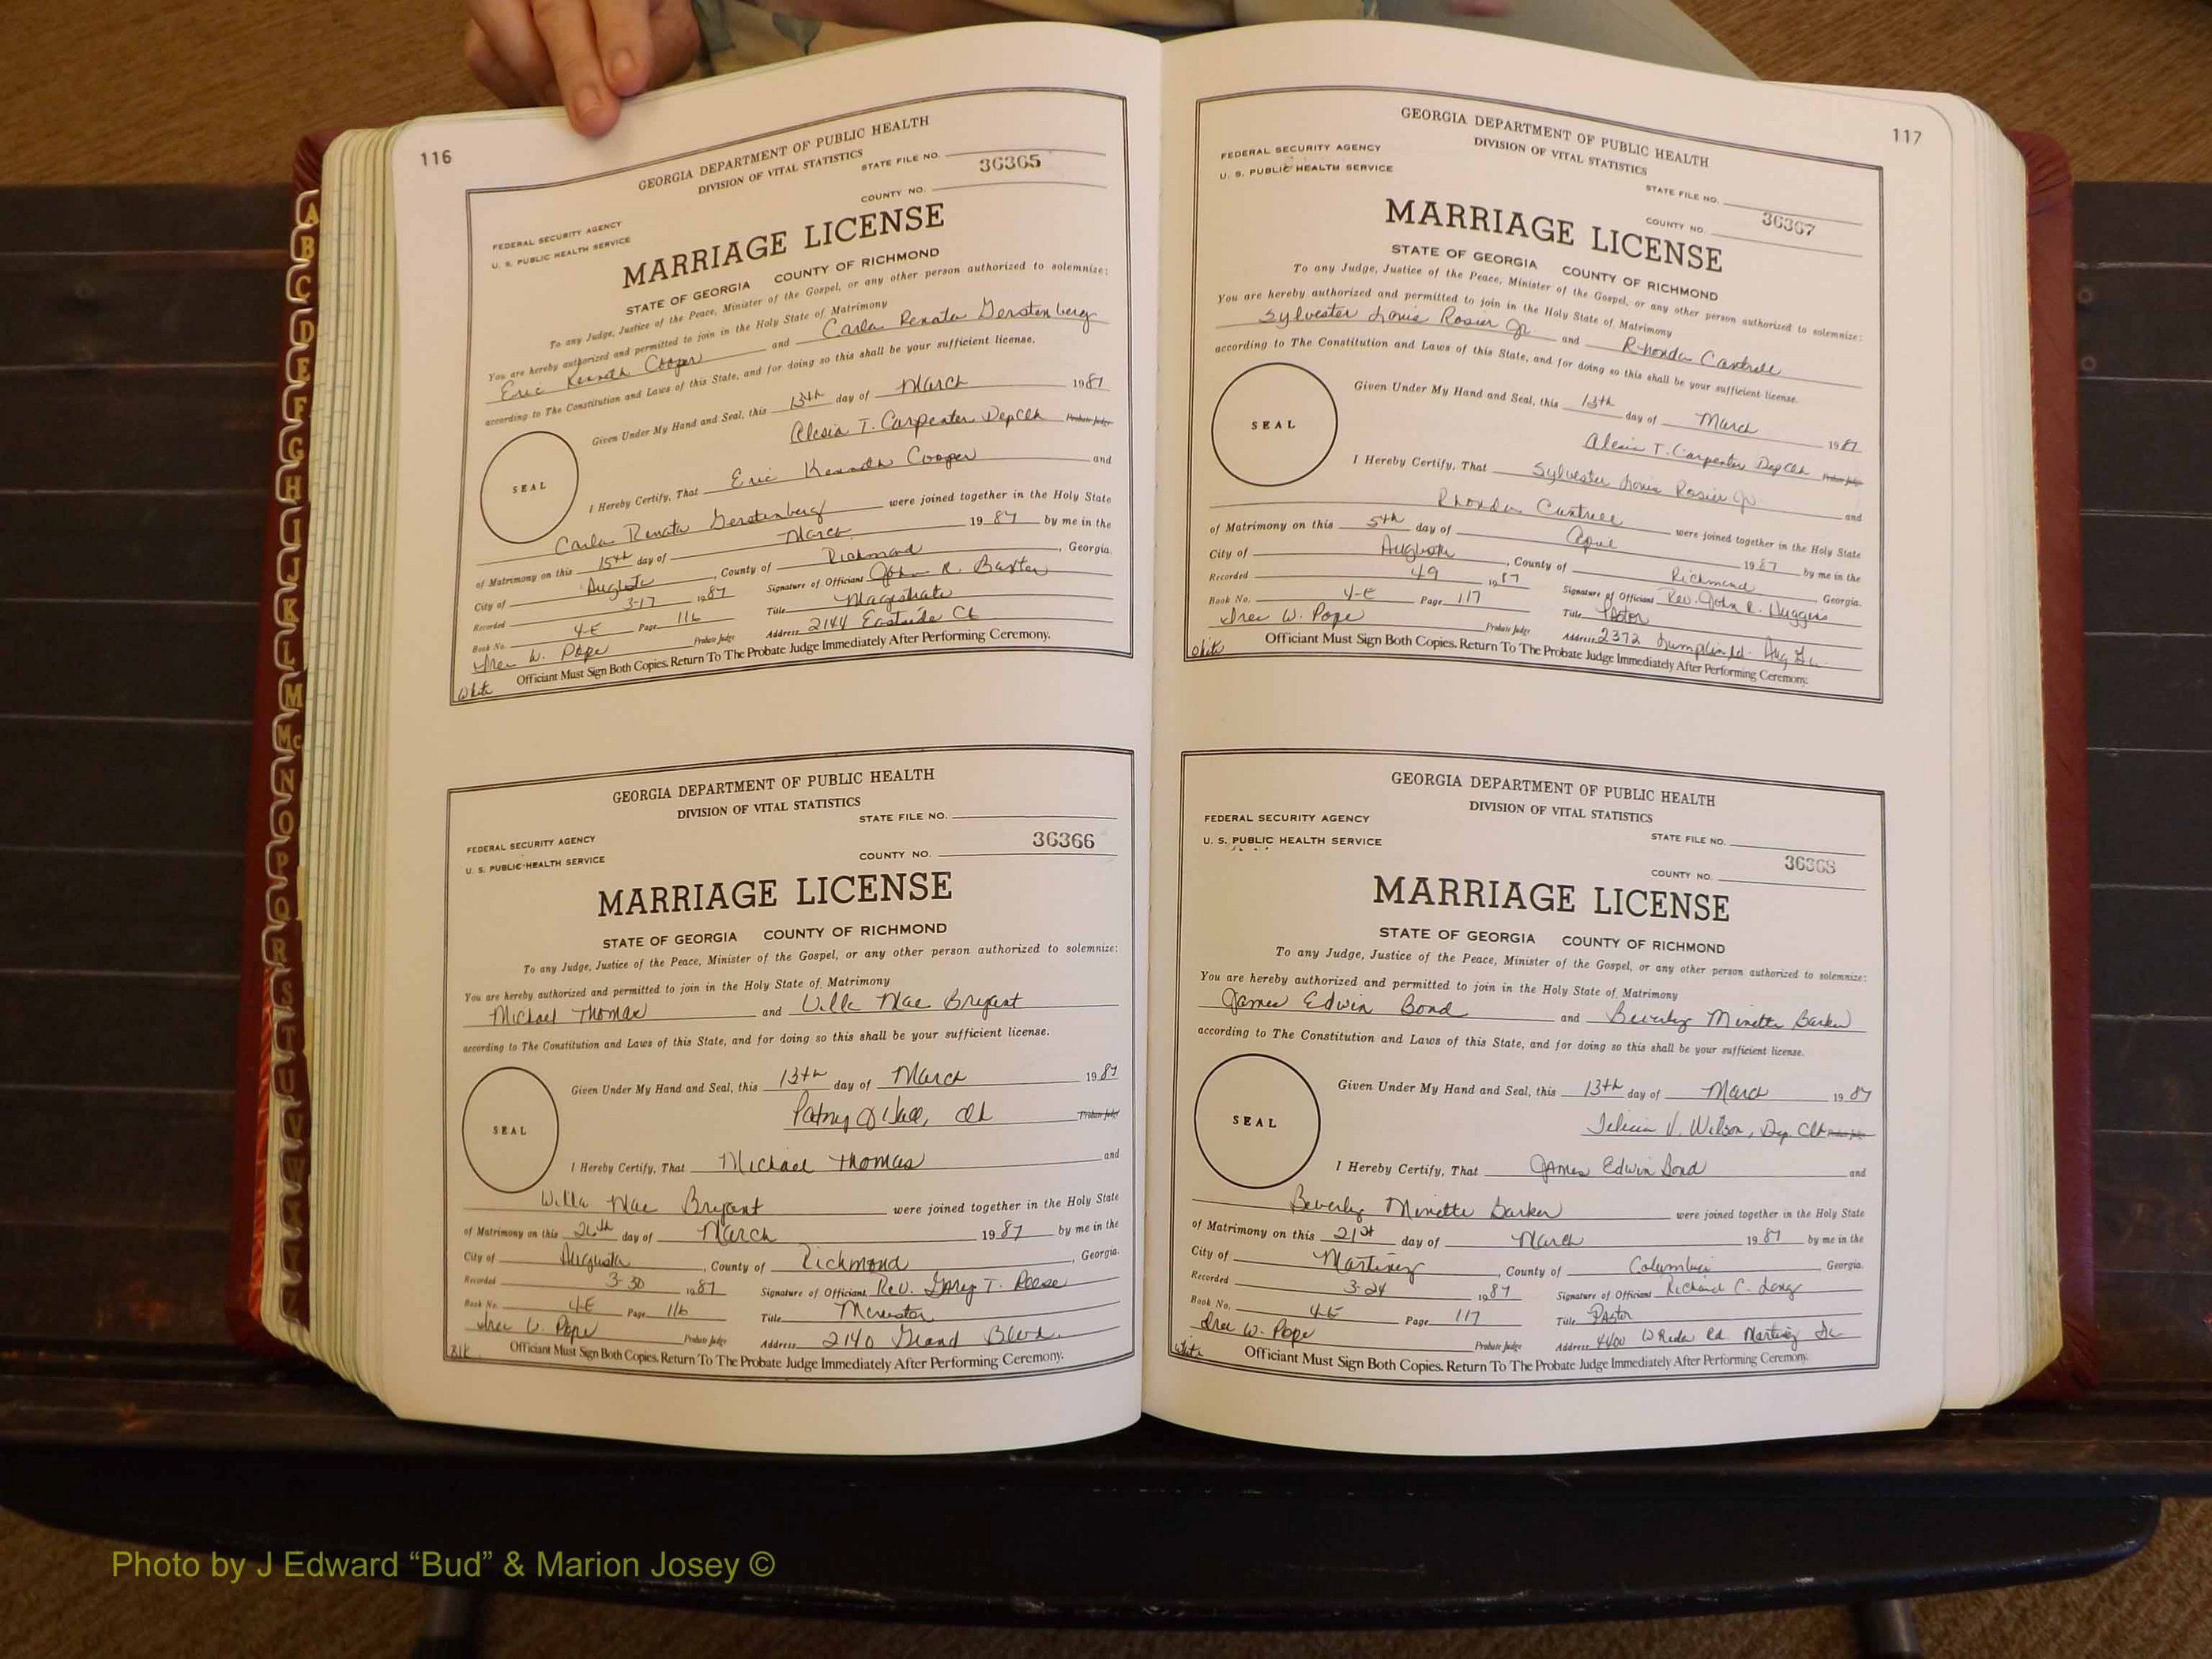 116
GEORGIA DEPARTMENT OF PUBLIC HEALTH
DIVISION OF VITAL STATISTICS
STATE FILE NO.
36365
COUNTY NO.
FEDERAL SECURITY AGENCY
U. S. PUBLIC HEALTH SERVICE
MARRIAGE LICENSE
STATE OF GEORGIA COUNTY OF RICHMOND
To any Judge, Justice of the Peace, Minister of the Gospel, or any other person authorized to solemnize:
You are hereby authorized and permitted to join in the Holy State of Matrimony
Eric Kenneth Cooper and Carla Renata Gerstenberg
according to The Constitution and Laws of this State, and for doing so this shall be your sufficient license.
Given Under My Hand and Seal, this 13th day of March 1987
Alesia T. Carpenter Dep Clk Probate Judge
SEAL
I Hereby Certify, That Eric Kenneth Cooper and
Carla Renata Gerstenberg were joined together in the Holy State
of Matrimony on this 15th day of March 19 87 by me in the
City of Augusta, County of Richmond, Georgia.
Recorded 3-17 1987 Signature of Officiant John R. Baxter
Book No. 4-E Page 116 Title Magistrate
W. Pope Probate Judge Address 2144 Eastside Ct
White Officiant Must Sign Both Copies. Return To The Probate Judge Immediately After Performing Ceremony.
GEORGIA DEPARTMENT OF PUBLIC HEALTH
DIVISION OF VITAL STATISTICS
STATE FILE NO.
FEDERAL SECURITY AGENCY
36366
U. S. PUBLIC HEALTH SERVICE
COUNTY NO.
MARRIAGE LICENSE
STATE OF GEORGIA COUNTY OF RICHMOND
To any Judge, Justice of the Peace, Minister of the Gospel, or any other person authorized to solemnize:
You are hereby authorized and permitted to join in the Holy State of Matrimony
Michael Thomas and Willa Mae Bryant
according to The Constitution and Laws of this State, and for doing so this shall be your sufficient license.
Given Under My Hand and Seal, this 13th day of March 1987
Clk Probate Judge
SEAL
I Hereby Certify, That Michael Thomas and
Willa Mae Bryant were joined together in the Holy State
of Matrimony on this 26th day of March 1987 by me in the
City of Augusta, County of Richmond, Georgia.
Recorded 3-30 1987 Signature of Officiant Rev. Gary T. Reese
Book No. 4-E Page 116 Title
W. Pope Probate Judge Address 2140 Grand Blvd.
Blk Officiant Must Sign Both Copies. Return To The Probate Judge Immediately After Performing Ceremony.
117
GEORGIA DEPARTMENT OF PUBLIC HEALTH
DIVISION OF VITAL STATISTICS
FEDERAL SECURITY AGENCY
U. S. PUBLIC HEALTH SERVICE
STATE FILE NO.
36367
COUNTY NO.
MARRIAGE LICENSE
STATE OF GEORGIA COUNTY OF RICHMOND
To any Judge, Justice of the Peace, Minister of the Gospel, or any other person authorized to solemnize:
You are hereby authorized and permitted to join in the Holy State of Matrimony
Sylvester Louis Rosier Jr and Rhonda Cantrell
according to The Constitution and Laws of this State, and for doing so this shall be your sufficient license.
Given Under My Hand and Seal, this 13th day of March 1987
Alesia T. Carpenter Dep Clk Probate Judge
SEAL
I Hereby Certify, That Sylvester Louis Rosier Jr. and
Rhonda Cantrell were joined together in the Holy State
of Matrimony on this 5th day of April 1987 by me in the
City of Augusta, County of Richmond Georgia.
Recorded 49 1987 Signature of Officiant Rev. John R. Huggins
Book No. 4-E Page 117 Title Pastor
W. Pope Probate Judge Address 2372 Lumpkin Rd. Aug Ga.
White Officiant Must Sign Both Copies. Return To The Probate Judge Immediately After Performing Ceremony.
GEORGIA DEPARTMENT OF PUBLIC HEALTH
DIVISION OF VITAL STATISTICS
FEDERAL SECURITY AGENCY
STATE FILE NO.
U. S. PUBLIC HEALTH SERVICE
36368
COUNTY NO.
MARRIAGE LICENSE
STATE OF GEORGIA COUNTY OF RICHMOND
To any Judge, Justice of the Peace, Minister of the Gospel, or any other person authorized to solemnize:
You are hereby authorized and permitted to join in the Holy State of Matrimony
James Edwin Bond and Beverly Minette Barker
according to The Constitution and Laws of this State, and for doing so this shall be your sufficient license.
Given Under My Hand and Seal, this 13th day of March 1987
Felicia V. Wilson, Dep. Clk Probate Judge
SEAL
I Hereby Certify, That James Edwin Bond and
Beverly Minette Barker were joined together in the Holy State
of Matrimony on this 21st day of March 1987 by me in the
City of Martinez, County of Columbia Georgia.
Recorded 3-24 1987 Signature of Officiant Richard C. Long
Book No. 4-E Page 117 Title Pastor
W. Pope Probate Judge Address 4400 Rd. Martinez Ga
White Officiant Must Sign Both Copies. Return To The Probate Judge Immediately After Performing Ceremony.
A
B
C
D
E
F
G
H
I
J
K
L
M
Mc
N
O
P
Q
R
S
T
U
V
W
Photo by J Edward “Bud” & Marion Josey ©